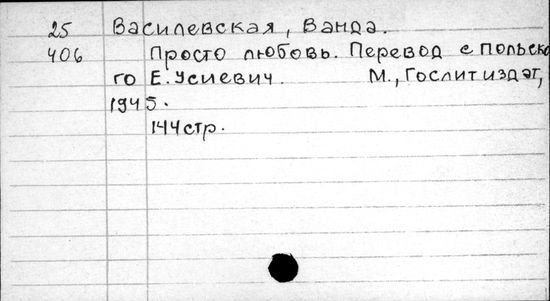 25 Василевская, Ванда.
406 Просто любовь. Перевод с польско
го Е. Усиевич. М., Гослитиздат,
1945.
144 стр.